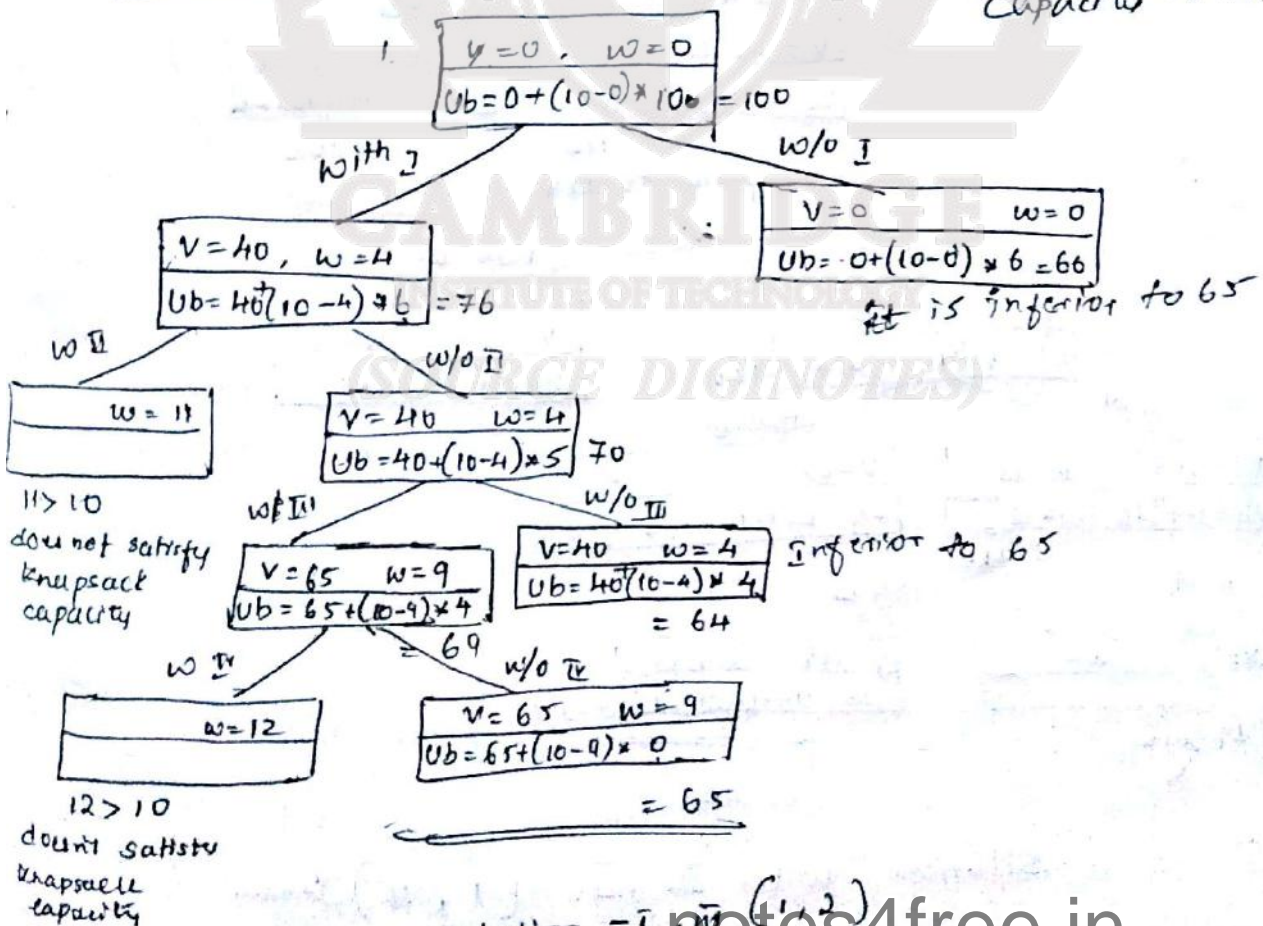 Capacity
1. V=0, w=0
Ub=0+(10-0)* 100 = 100
with I
w/o I
V=0 w=0
Ub= 0+(10-0) * 6 =60
It is inferior to 65
V=40, w=4
Ub=40+(10-4)*6 =76
w II
w/o II
w= 11
11>10
dou not satisfy
knapsack
capacity
V=40 w=4
Ub=40+(10-4)*5 70
w III
w/o III
V=65 w=9
Ub= 65+(10-9)*4
= 69
V=40 w=4
Ub=40+(10-4)* 4
= 64
Inferior to 65
w IV
w/o IV
w=12
12>10
dount satisfy
knapsack
capacity
V=65 w=9
Ub=65+(10-9)* 0
= 65
CAMBRIDGE
INSTITUTE OF TECHNOLOGY
(SOURCE DIGINOTES)
notes4free.in